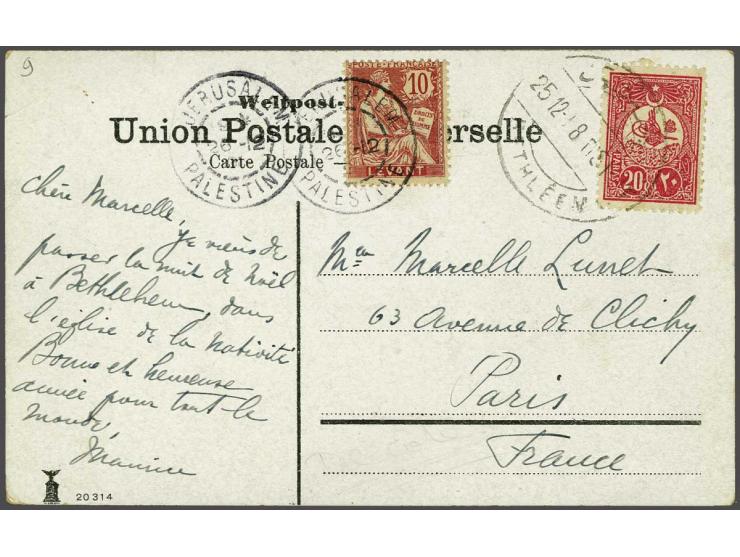 9
Weltpost-
Union Postale erselle
Carte Postale
JERUSALEM
PALESTINE
JERUSALEM
PALESTINE
POSTE FRANÇAISE
10
LEVANT
25 12
THLÉEM
20
٢٠
Chère Marcelle,
Je viens de
passer la nuit de Noël
à Bethlehem, dans
l'église de la Nativité
Bonne et heureuse
année pour tout le
monde,
Maurice
20314
Marcelle
63 Avenue de Clichy
Paris
France